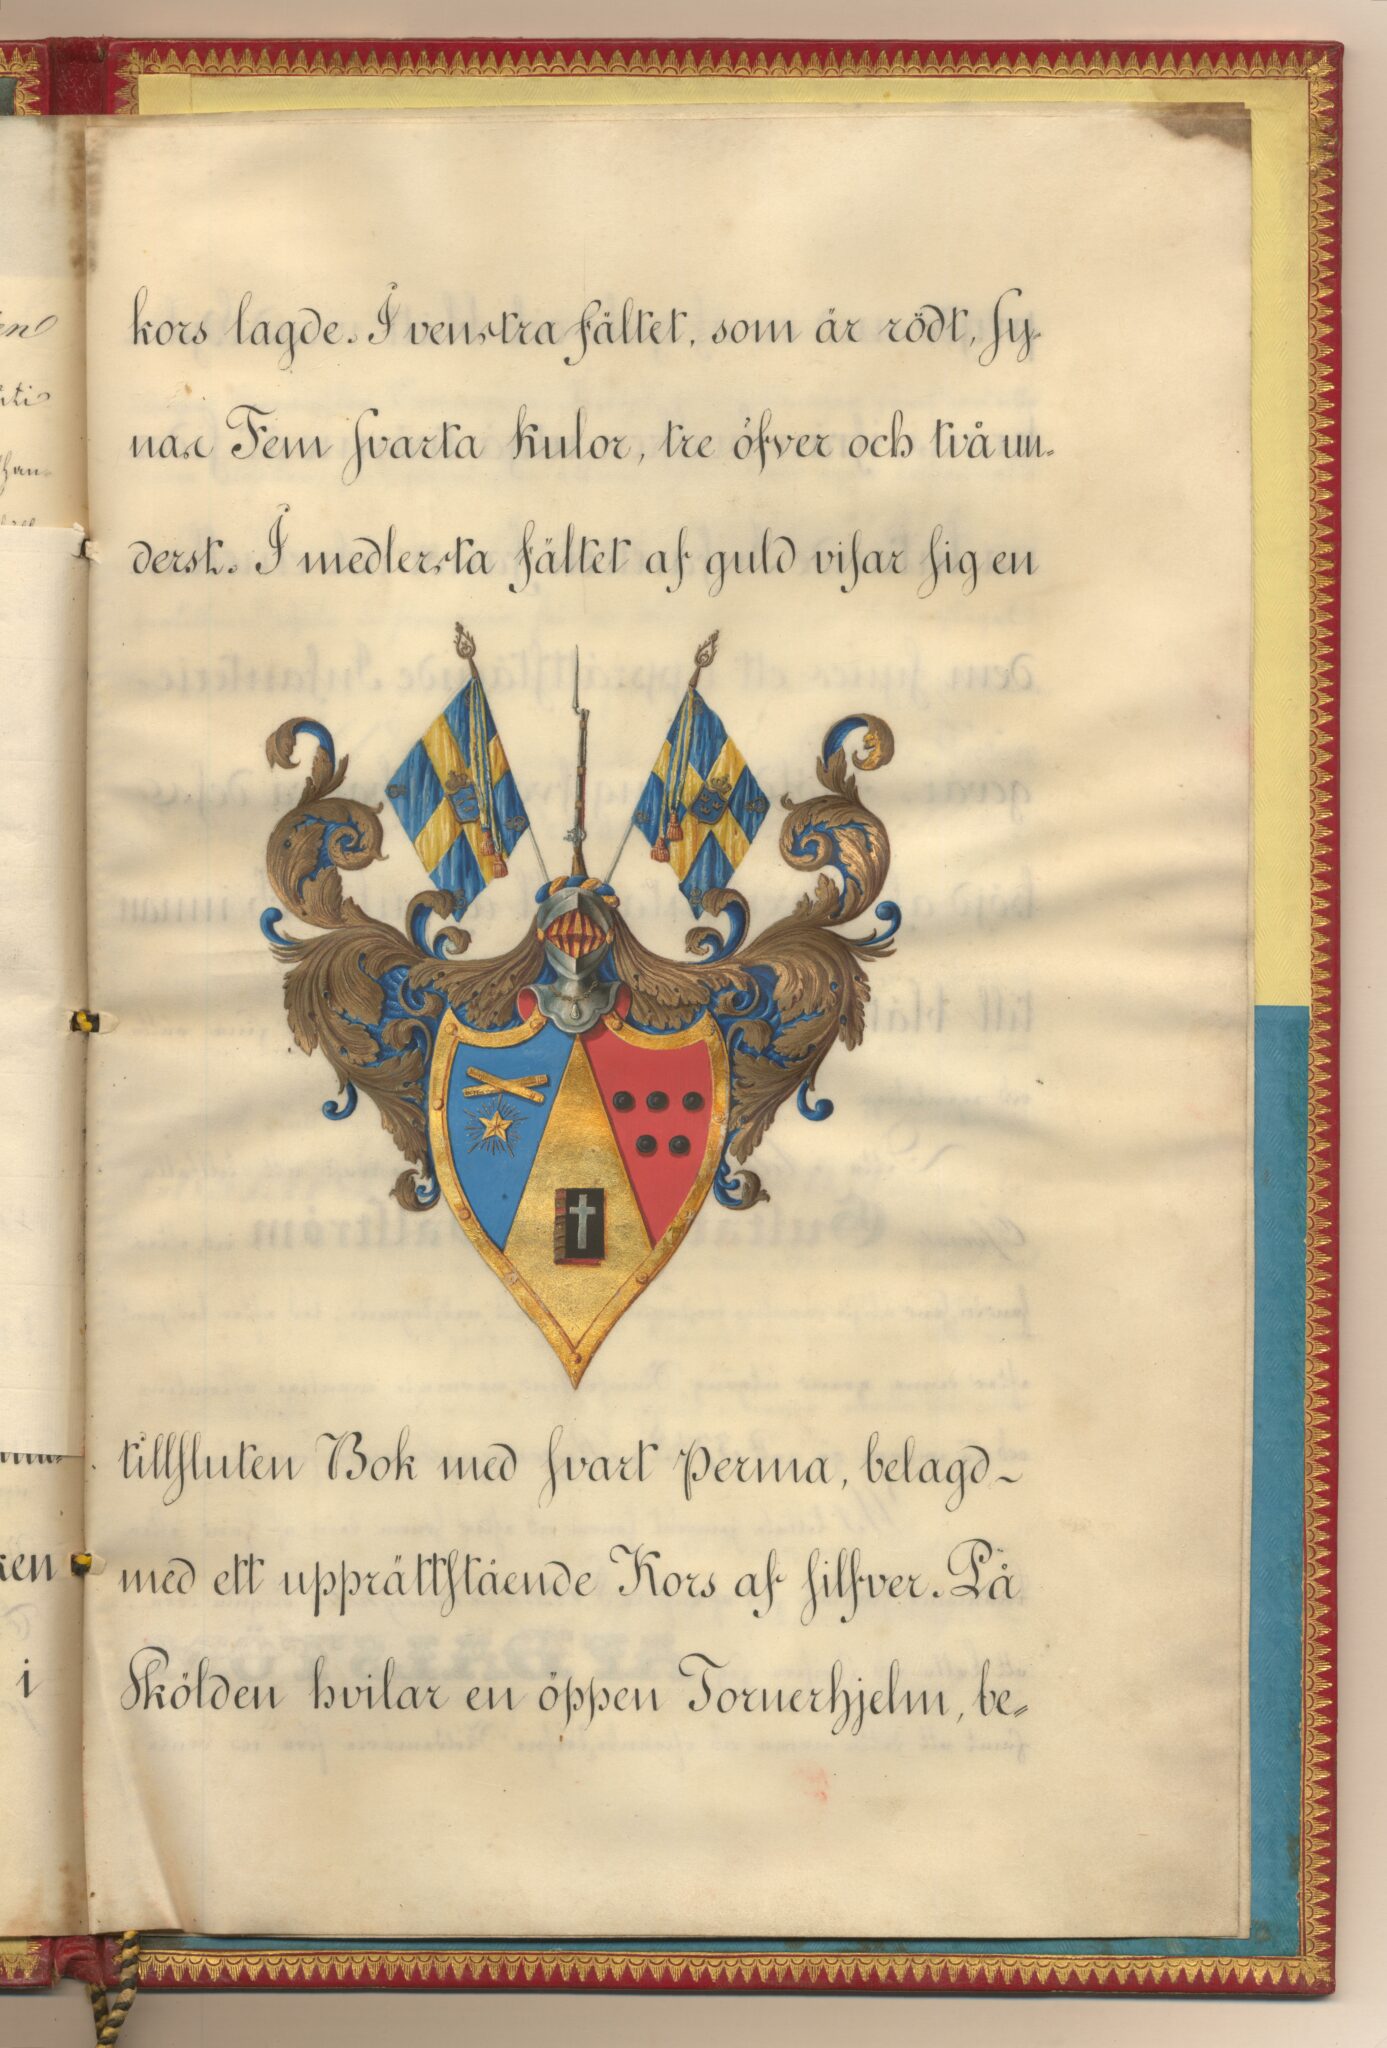 kors lagde. I venstra fältet, som är rödt, sy-
nas Fem svarta Kulor, tre öfver och två un-
derst. I medlersta fältet af guld visar sig en
tillsluten Bok med svart Perma, belagd
med ett upprättstående Kors af silfver. På
Skölden hvilar en öppen Tornerhjelm, be-
ken
i